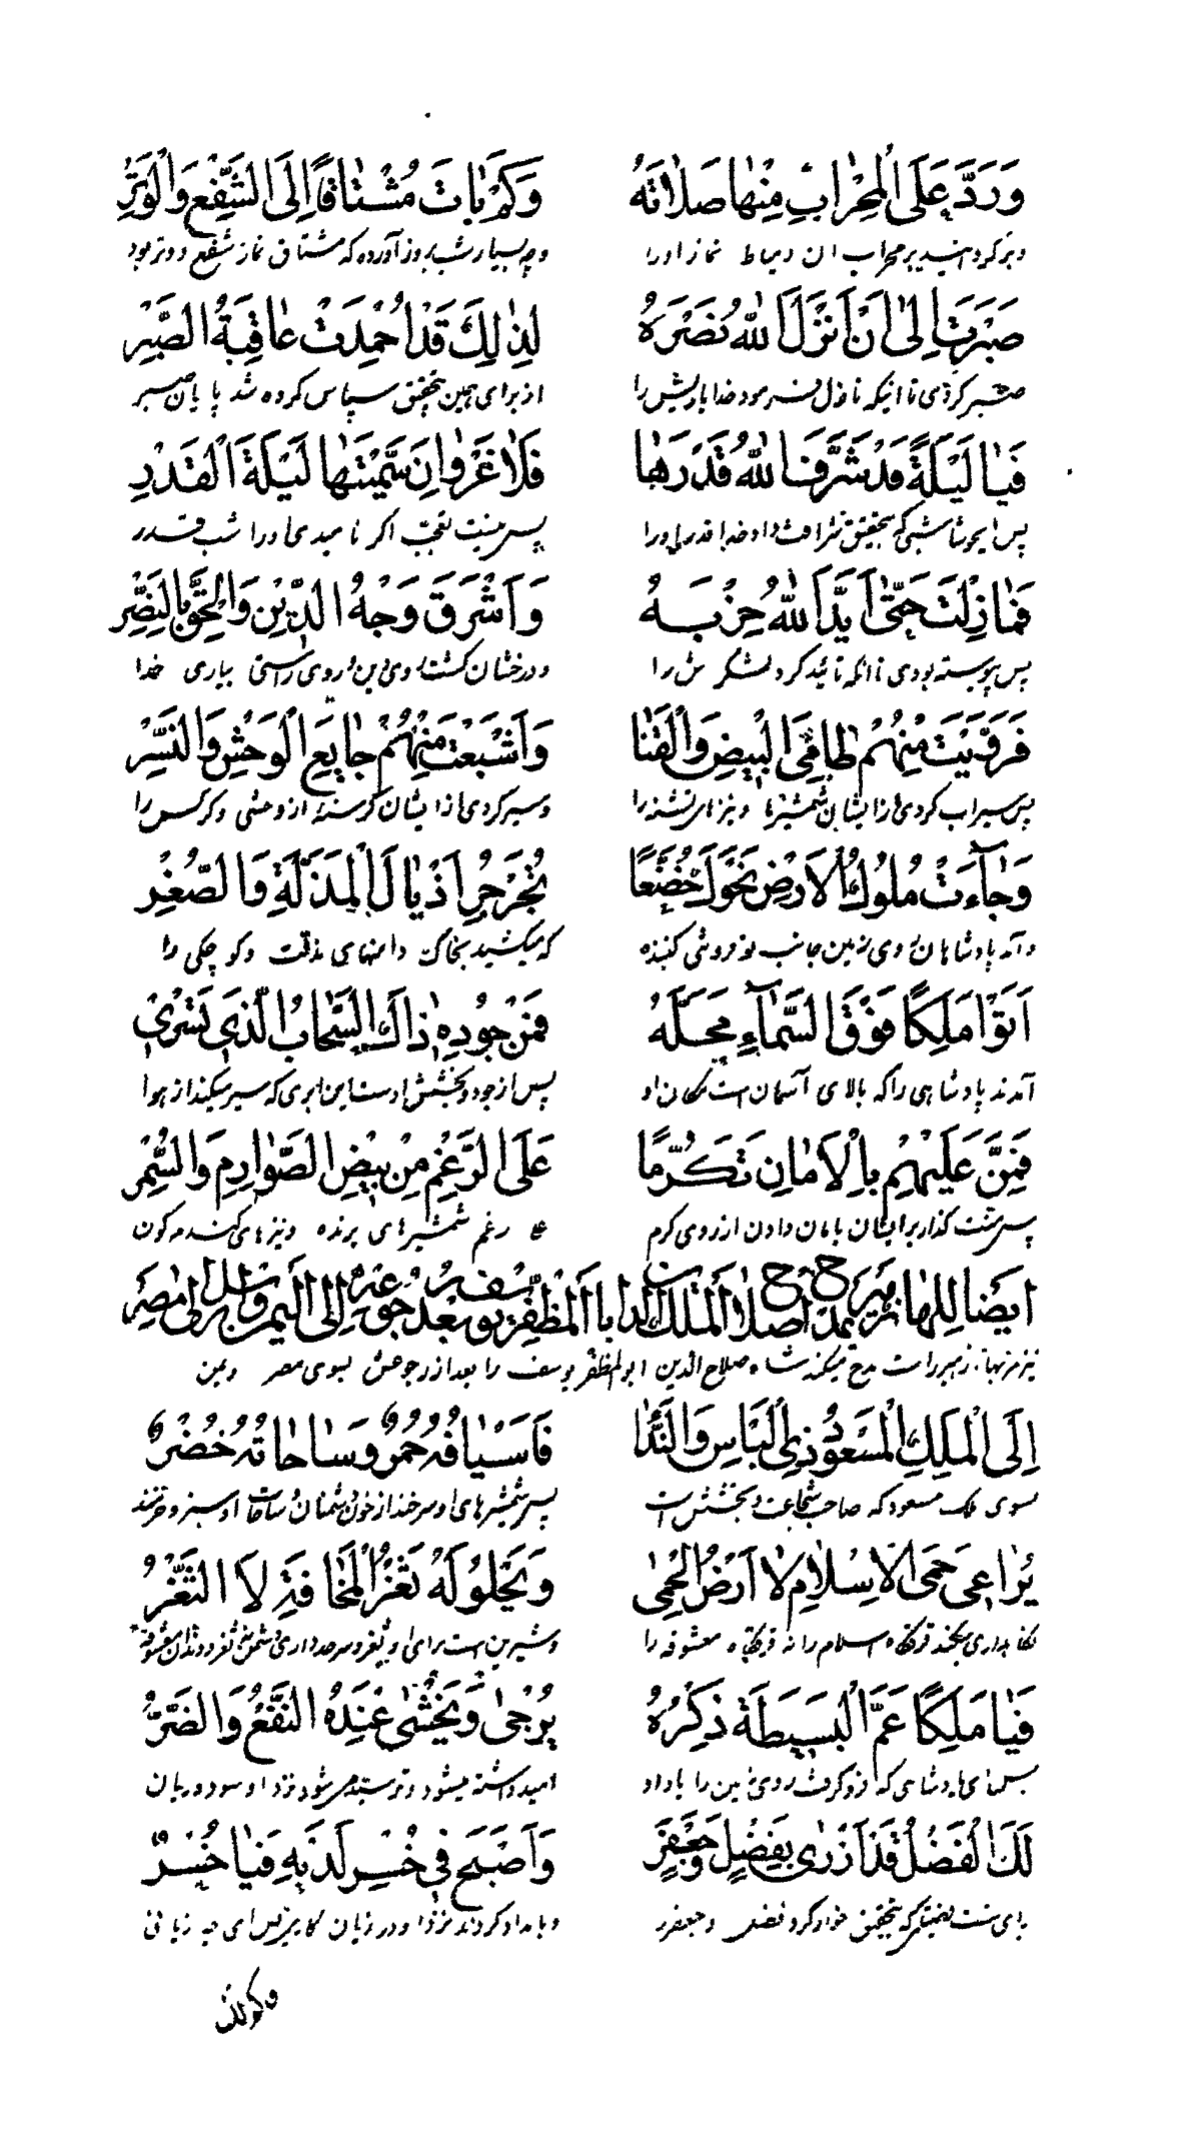 وَرَدَّ عَلَى الْمِحْرَابِ مِنْهَا صَلَاتَهُ وَكَمْ بَاتَ مُشْتَاقًا إِلَى الشَّفْعِ وَالْوَتْرِ
وبرگردانید بر محراب آن دمیاط نماز او را وچه بسیار شب بروز آورده که مشتاق نماز شفع و وتر بود
صَبَرْتَ إِلَىٰ أَنْ أَنْزَلَ اللَّهُ نَصْرَهُ لِذَٰلِكَ قَدْ أُحْمِدَتْ عَاقِبَةُ الصَّبْرِ
صبر کردی تا اینکه نازل فرمود خدا یاریش را از برای همین بتحقیق سپاس کرده شد پایان صبر
فَيَا لَيْلَةً قَدْ شَرَّفَ اللَّهُ قَدْرَهَا فَلَا غَرْوَ إِنْ سَمَّيْتَهَا لَيْلَةَ الْقَدْرِ
پس ای خوشا شبی که بتحقیق شرافت داد خدا قدر او را پس نیست تعجب اگر نامیدی او را شب قدر
فَمَا زِلْتَ حَتَّىٰ أَيَّدَ اللَّهُ حِزْبَهُ وَأَشْرَقَ وَجْهُ الدِّينِ وَالْحَقِّ بِالنَّصْرِ
پس پیوسته بودی تا آنکه تائید کرد لشکرش را ودرخشان گشت روی دین و روی راستی بیاری خدا
فَرَوَّيْتَ مِنْهُمْ ظَامِئَ الْبِيضِ وَالْقَنَا وَأَشْبَعْتَ مِنْهُمْ جَايِعَ الْوَحْشِ وَالنَّسْرِ
پس سیراب کردی از ایشان شمشیرها ونیزهای تشنه را وسیر کردی از ایشان گرسنه از وحشی وکرکس را
وَجَاءَتْ مُلُوكُ الْأَرْضِ نَحْوَكَ خُضَّعًا تُجَرْجِرُ أَذْيَالَ الْمَذَلَّةِ وَالصُّغْرِ
وآمد پادشاهان روی زمین جانب تو فروتنی کننده که میکشید بخاک دامنهای مذلت وکوچکی را
أَتَوْا مَلِكًا فَوْقَ السَّمَاءِ مَحَلُّهُ فَمَنْ جُودِهِ ذَاكَ السَّحَابُ الَّذِي يَسْرِي
آمدند پادشاهی را که بالای آسمان است مکان او پس از جود و بخشش اوست این ابری که سیر میکند از هوا
فَمَنَّ عَلَيْهِمْ بِالْأَمَانِ تَكَرُّمًا عَلَى الرَّغْمِ مِنْ بِيضِ الصَّوَارِمِ وَالسُّمْرِ
پس منت گذار بر ایشان بامان دادن از روی کرم رغم شمشیرهای برنده ونیزهای گندم گون
أَيْضًا لِلْبَهَا زُهَيْر يَمْدَحُ صَلَاحَ الْمَلِكَ الدِّين أَبَا الْمُظَفَّرِ يُوسُفَ بَعْدَ رُجُوعِهِ إِلَى الْيَمَنِ وَقِيلَ إِلَى مِصْرَ
نیز مر بها زهیر راست مدح میکند شاه صلاح الدین ابوالمظفر یوسف را بعد از رجوعش بسوی مصر ویمن
إِلَى الْمَلِكِ الْمَسْعُودِ ذِي الْبَأْسِ وَالنَّدَا فَأَسْيَافُهُ حُمْرٌ وَسَاحَاتُهُ خُضْرٌ
بسوی ملک مسعود که صاحب شجاعت و بخشش است پس شمشیرهای او سرخند از خون دشمنان و ساحات او سبز وخرمند
يُرَاعِي حِمَى الْإِسْلَامِ لَا أَرْضَ الْحِمَىٰ وَيَحْلُو لَهُ ثَغْرُ الْمَخَافَةِ لَا الثَّغْرُ
نگاهداری میکند قرقگاه اسلام را نه قرقگاه معشوقه را وشیرین است برای او
فَيَا مَلِكًا عَمَّ الْبَسِيطَةَ ذِكْرُهُ يُرْجَىٰ وَيُخْشَىٰ عِنْدَهُ النَّفْعُ وَالضَّرُّ
پس ای پادشاهی که فرو گرفت روی زمین را یاد او امید داشته میشود وترسیده میشود نزد او سود و زیان
لَكَ الْفَضْلُ قَدْ أَزْرَىٰ بِفَضْلٍ وَجَعْفَرٍ وَأَصْبَحَ فِي خُسْرٍ لَدَيْهِ فَيَا خُسْرٌ
برای تست فضیلتی که بتحقیق خوار کرد فضل وجعفر وبامداد کردند نزد او در زیان کاری پس ای چه زیانی